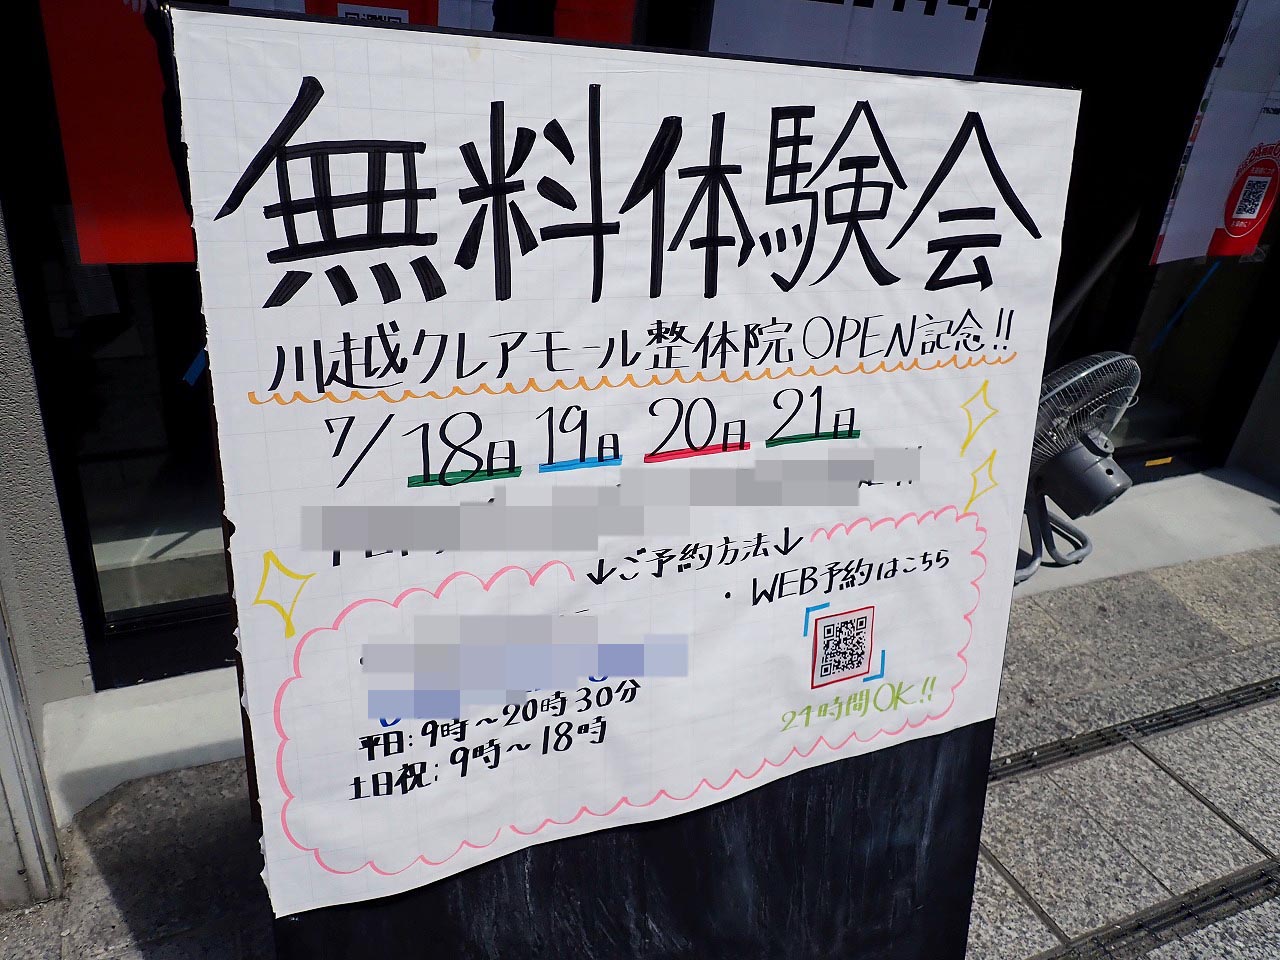 無料体験会
川越クレアモール整体院OPEN記念!!
7/18日 19日 20日 21日
↓ご予約方法↓
・WEB予約はこちら
24時間OK!!
平日:9時~20時30分
土日祝:9時~18時